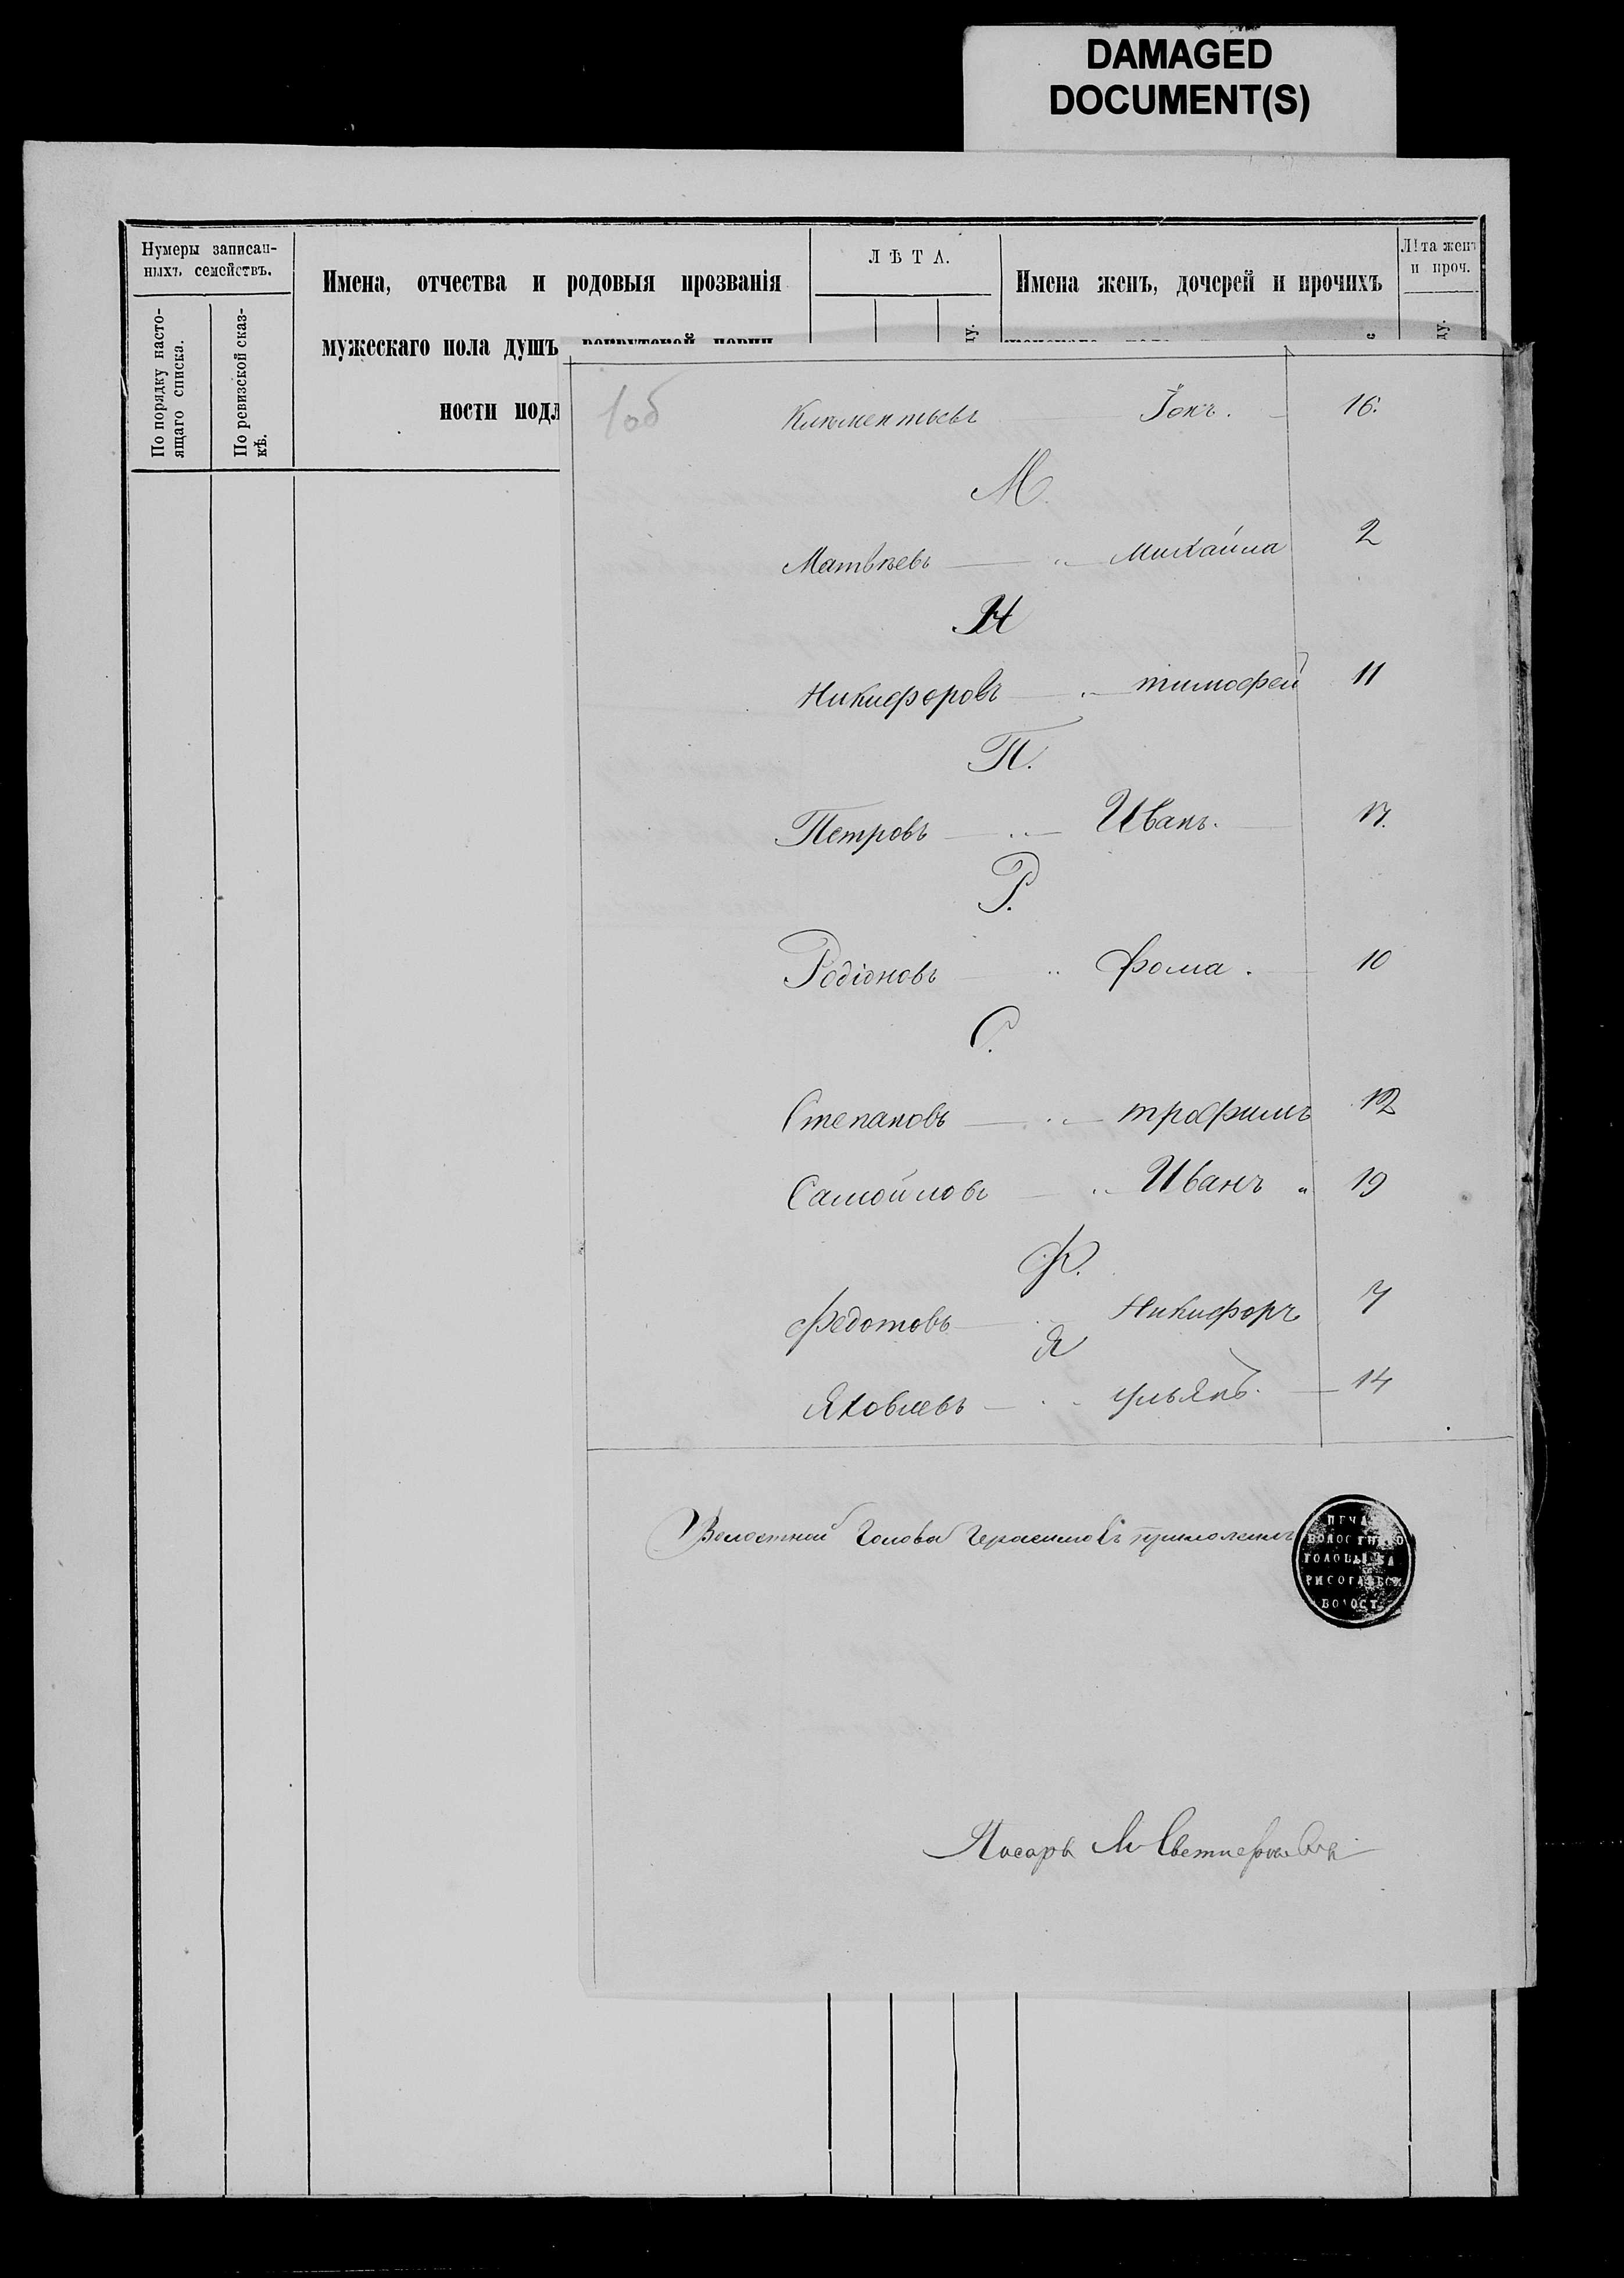 DAMAGED
DOCUMENT(S)
Нумеры записан-
ныхъ семействъ.
По порядку насто-
ящаго списка.
По ревизской сказ-
кѣ.
Имена, отчества и родовыя прозванія
мужескаго пола душъ, рекрутской повин-
ности подл
ЛѢТА.
Имена женъ, дочерей и прочихъ
Лѣта женъ
и проч.
1об
Климентьевъ Іонъ. 16.
М.
Матвѣевъ Михайла 2
Н
Никифоровъ тимофей 11
П.
Петровъ Иванъ. 17.
Р.
Родіоновъ Фома. 10
С.
Степановъ трофимъ 12
Самойловъ Иванъ 19
Ф.
Федотовъ Никифоръ 7
Я
Яковлевъ ульянъ. 14
Волостной Голова Герасимовъ приложилъ
ПЕЧА
ВОЛОСТНАГО
ГОЛОВЫ
РИСОГЛЕБСК
ВОЛОСТ
Писарь